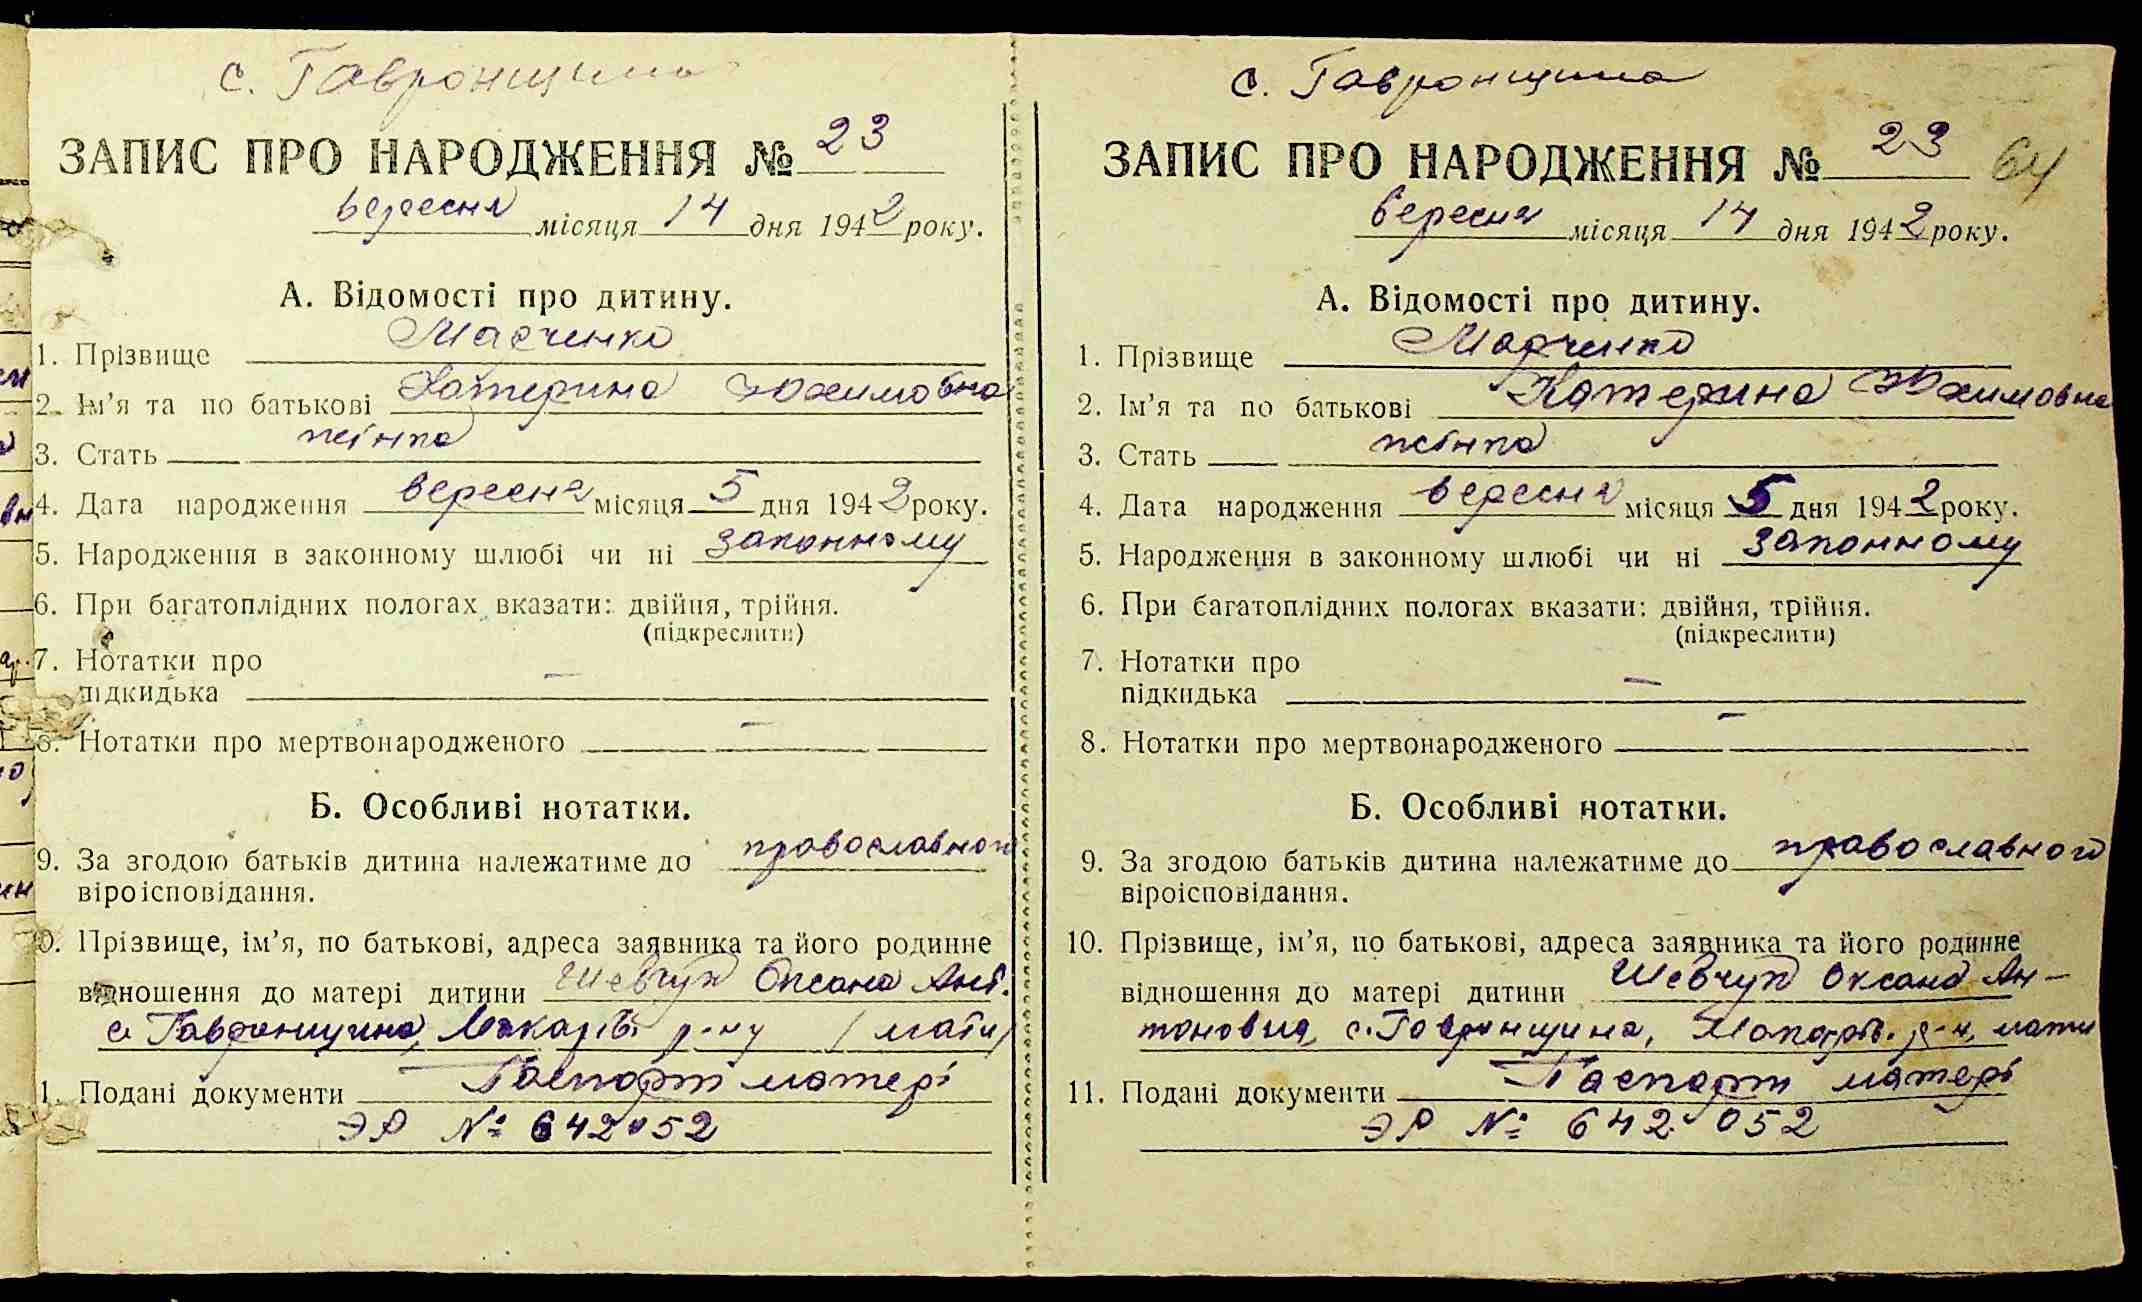 с. Гавронщина
ЗАПИС ПРО НАРОДЖЕННЯ № 23
вересня місяця 14 дня 1942 року.
А. Відомості про дитину.
1. Прізвище Марченко
2. Ім’я та по батькові Катерина Юхимовна
3. Стать жінка
4. Дата народження вересня місяця 5 дня 1942 року.
5. Народження в законному шлюбі чи ні законному
6. При багатоплідних пологах вказати: двійня, трійня.
(підкреслити)
7. Нотатки про
підкидька —
8. Нотатки про мертвонародженого —
Б. Особливі нотатки.
9. За згодою батьків дитина належатиме до православного
віроісповідання.
10. Прізвище, ім’я, по батькові, адреса заявника та його родинне
відношення до матері дитини Шевчук Оксана Ант.
с. Гавронщина, Макарів. р-ну (мати)
11. Подані документи Паспорт матері
ЭР № 642052
с. Гавронщина
ЗАПИС ПРО НАРОДЖЕННЯ № 23 64
вересня місяця 14 дня 1942 року.
А. Відомості про дитину.
1. Прізвище Марченко
2. Ім’я та по батькові Катерина Юхимовна
3. Стать жінка
4. Дата народження вересня місяця 5 дня 1942 року.
5. Народження в законному шлюбі чи ні законному
6. При багатоплідних пологах вказати: двійня, трійня.
(підкреслити)
7. Нотатки про
підкидька —
8. Нотатки про мертвонародженого —
Б. Особливі нотатки.
9. За згодою батьків дитина належатиме до православного
віроісповідання.
10. Прізвище, ім’я, по батькові, адреса заявника та його родинне
відношення до матері дитини Шевчук Оксана Ан-
тоновна, с. Гавронщина, Макарів. р-н, мати
11. Подані документи Паспорт матері
ЭР № 642052